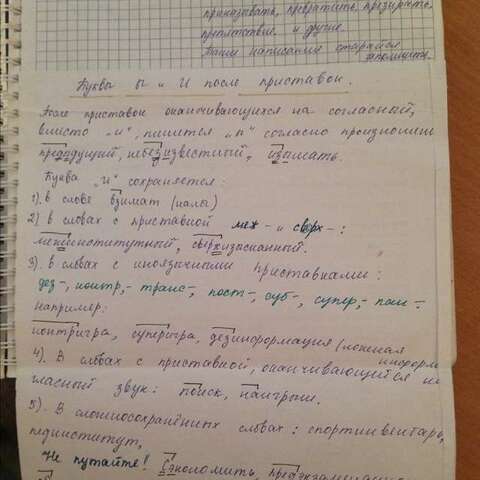 приказывать, превратить, презирать,
препятствие и другие.
Такие написания старайся
запомнить.
Буквы ы и и после приставок.
После приставок оканчивающихся на согласный,
вместо „и", пишется „ы" согласно произношени
предыдущий,
Буква „и" сохраняется:
1). в слове взимать (налы)
2) в словах с приставкой меж- и сверх-:
межинститутный, сверхизысканный.
3). в словах с иноязычными приставками:
дез-, контр,- транс-, пост-, суб-, супер,- пан-.
например:
контригра, суперигра, дезинформация (ложная информ
4). В словах с приставкой, оканчивающейся на
гласный звук: поиск, наигрыш.
5). В сложносокращённых словах: спортинвентарь,
пединститут,
Не путайте! Сэкономить,